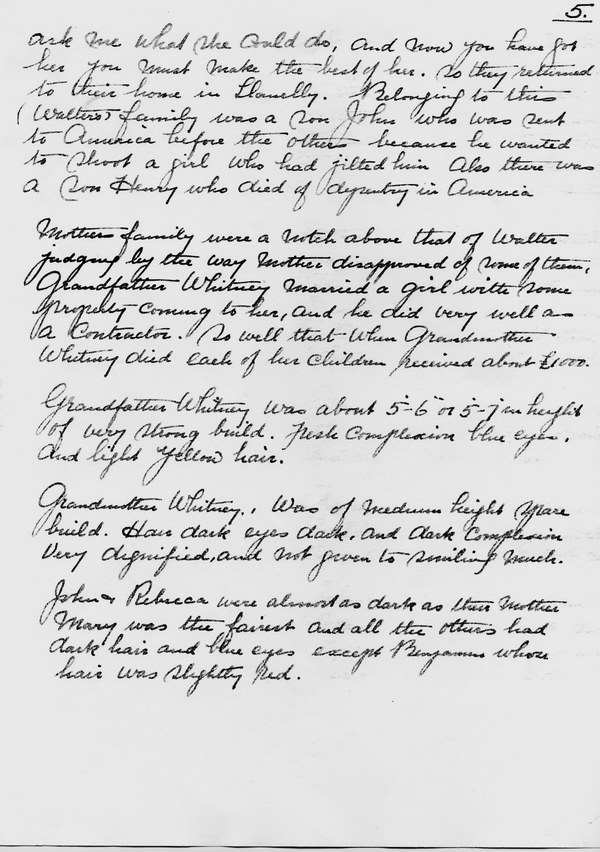 5.
ask me what she could do, and now you have got
her you must make the best of her. So they returned
to their home in Llanelly. Belonging to this
(Walters) family was a son John who was sent
to America before the others because he wanted
to shoot a girl who had jilted him Also there was
a son Henry who died of dysentry in America
Mothers family were a notch above that of Walter
judging by the way Mother disapproved of some of them,
Grandfather Whitney married a girl with some
property coming to her, and he did very well as
a Contractor. So well that when Grandmother
Whitney died each of her children received about £1000.
Grandfather Whitney was about 5-6 or 5-7 in height
of very strong build. Fresh Complexion blue eyes.
And light yellow hair.
Grandmother Whitney., was of medium height spare
build. Hair dark eyes dark, and dark Complexion
Very dignified, and not given to smiling much.
John & Rebecca were almost as dark as their Mother
Mary was the fairest and all the others had
dark hair and blue eyes except Benjamin whose
hair was slightly red.